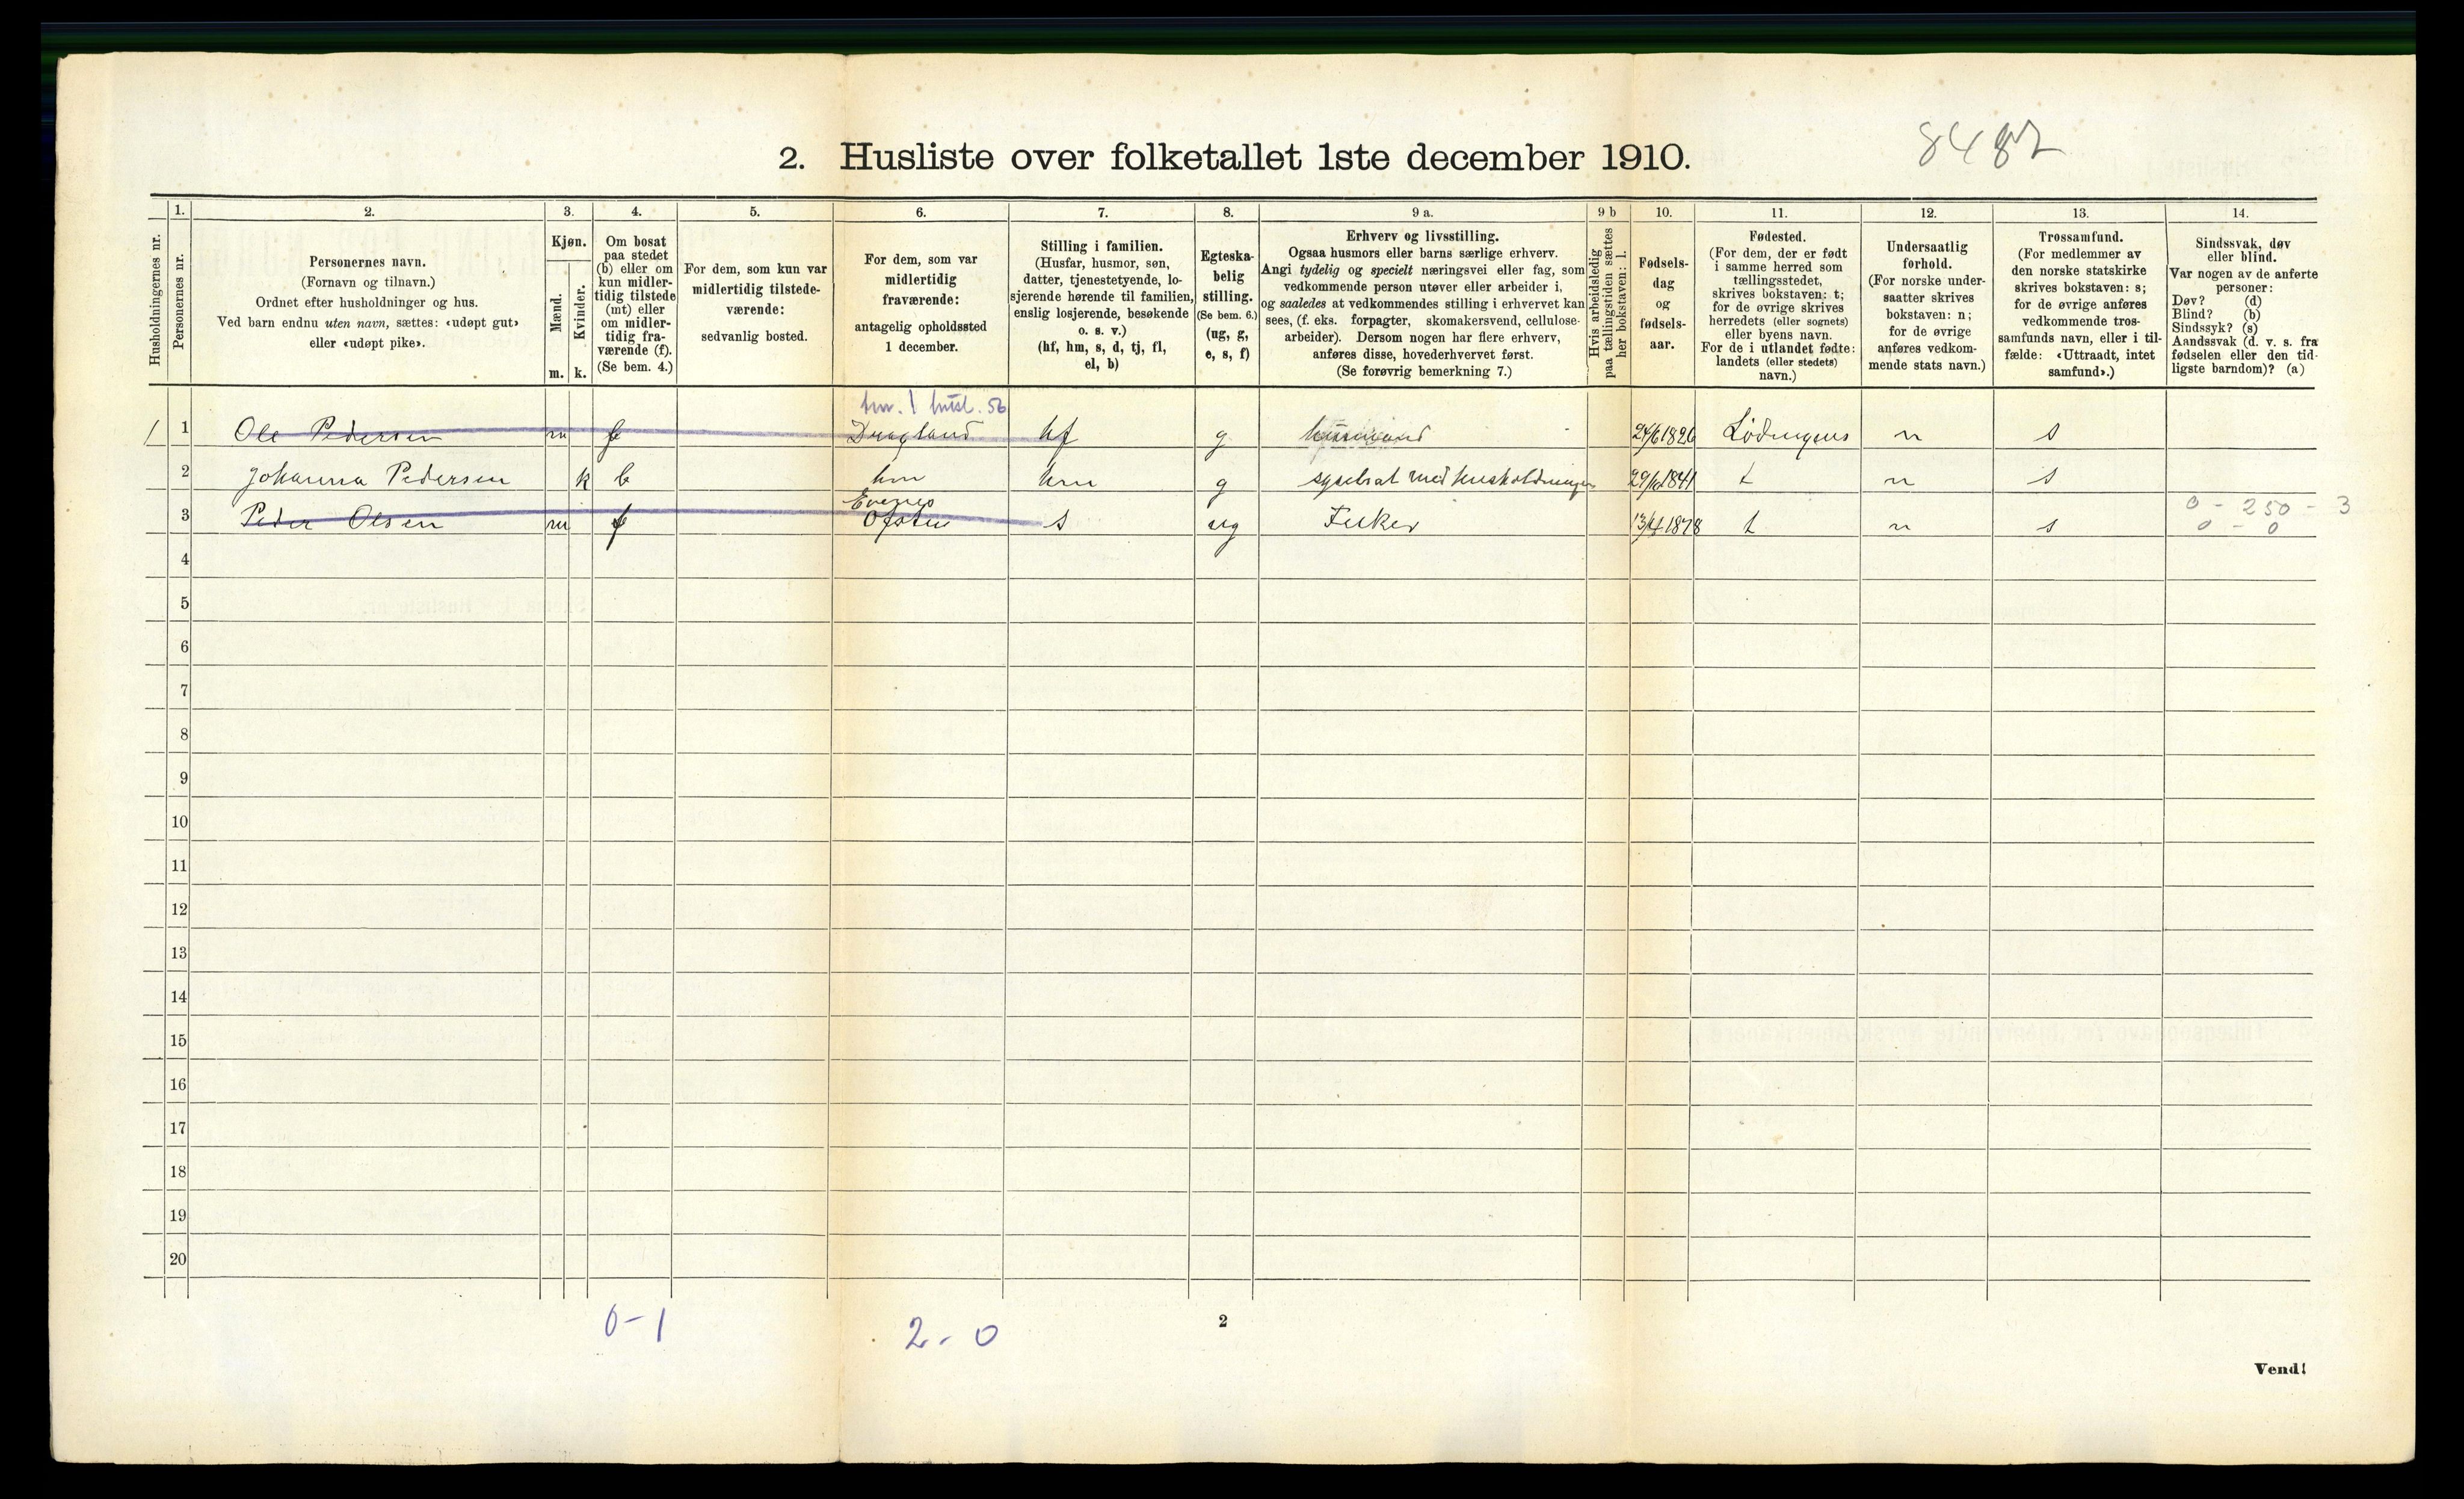 8482
2. Husliste over folketallet 1ste december 1910.
Husholdningernes nr.
1.
Personernes nr.
2.
Personernes navn.
(Fornavn og tilnavn.)
Ordnet efter husholdninger og hus.
Ved barn endnu uten navn, sættes: «udøpt gut»
eller «udøpt pike».
3.
Kjøn.
Mænd.
Kvinder.
m. k.
4.
Om bosat
paa stedet
(b) eller om
kun midler-
tidig tilstede
(mt) eller
om midler-
tidig fra-
værende (f).
(Se bem. 4.)
5.
For dem, som kun var
midlertidig tilstede-
værende:
sedvanlig bosted.
6.
For dem, som var
midlertidig
fraværende:
antagelig opholdssted
1 december.
7.
Stilling i familien.
(Husfar, husmor, søn,
datter, tjenestetyende, lo-
sjerende hørende til familien,
enslig losjerende, besøkende
o. s. v.)
(hf, hm, s, d, tj, fl,
el, b)
8.
Egteska-
belig
stilling.
(Se bem. 6.)
(ug, g,
e, s, f)
9 a.
Erhverv og livsstilling.
Ogsaa husmors eller barns særlige erhverv.
Angi tydelig og specielt næringsvei eller fag, som
vedkommende person utøver eller arbeider i,
og saaledes at vedkommendes stilling i erhvervet kan
sees, (f. eks. forpagter, skomakersvend, cellulose-
arbeider). Dersom nogen har flere erhverv,
anføres disse, hovederhvervet først.
(Se forøvrig bemerkning 7.)
9 b
Hvis arbeidsledig
paa tællingstiden sættes
her bokstaven: l.
10.
Fødsels-
dag
og
fødsels-
aar.
11.
Fødested.
(For dem, der er født
i samme herred som
tællingsstedet,
skrives bokstaven: t;
for de øvrige skrives
herredets (eller sognets)
eller byens navn.
For de i utlandet fødte:
landets (eller stedets)
navn.)
12.
Undersaatlig
forhold.
(For norske under-
saatter skrives
bokstaven: n;
for de øvrige
anføres vedkom-
mende stats navn.)
13.
Trossamfund.
(For medlemmer av
den norske statskirke
skrives bokstaven: s;
for de øvrige anføres
vedkommende tros-
samfunds navn, eller i til-
fælde: «Uttraadt, intet
samfund».)
14.
Sindssvak, døv
eller blind.
Var nogen av de anførte
personer:
Døv? (d)
Blind? (b)
Sindssyk? (s)
Aandssvak (d. v. s. fra
fødselen eller den tid-
ligste barndom)? (a)
1 1 Ole Pedersen m f Dragland hf g 24/6 1826 Lødingens n s
2 Johanna Pedersen k b hm hm g sysselsat med husholdningen 1841 t n s
Evenes
3 Peder Olsen m f Ofoten s ug Fisker 13/4 1878 t n s
0 - 250 - 3
0 - 0
4
5
6
7
8
9
10
11
12
13
14
15
16
17
18
19
20
0-1
2-0
2
Vend!